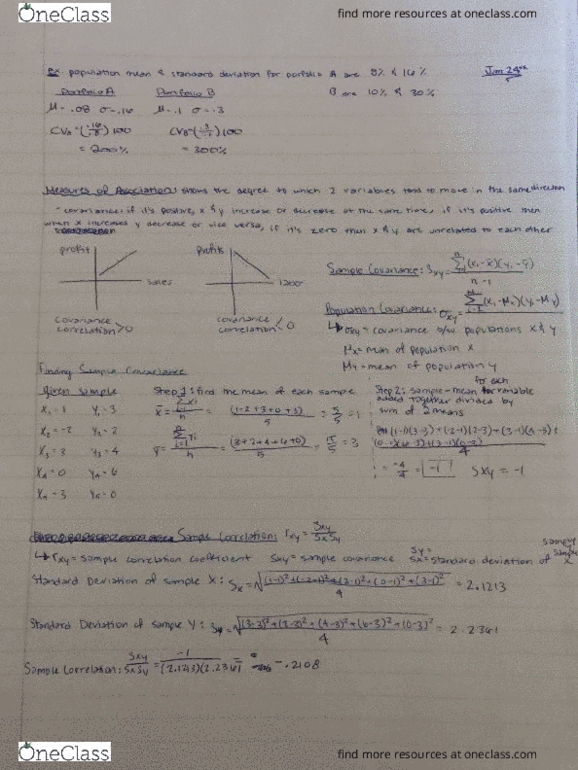 OneClass
find more resources at oneclass.com
Ex: population mean & standard deviation for portfolio A are 8% & 16%
Jan 24th
Portfolio A Portfolio B
B are 10% & 30%
μ = .08 σ = .16 μ = .1 σ = .3
CVA = (.16/.08)100 CVB = (.3/.1)100
= 200% = 300%
Measures of Association: shows the degree to which 2 variables tend to move in the same direction
- covariance: if it's positive, x & y increase or decrease at the same time, if it's positive then
when x increases y decrease or vice versa, if it's zero than x & y are unrelated to each other
profit
sales
profit
labor
covariance
correlation >0
covariance
correlation <0
Sample Covariance: Sxy = Σ(xi - x̄)(yi - ȳ) / n-1
Population Covariance: σxy = Σ(xi - Mx)(yi - My)
↳ σxy = covariance b/w populations x & y
Mx = mean of population x
My = mean of population y
Finding Sample Covariance
Given sample
x1 = 1 y1 = 3
x2 = -2 y2 = 2
x3 = 3 y3 = 4
x4 = 0 y4 = 6
x4 = 3 y5 = 0
Step 1: find the mean of each sample
x̄ = Σxi / n = (1-2+3+0+3) / 5 = 5/5 = 1
ȳ = Σyi / n = (3+2+4+6+0) / 5 = 15/5 = 3
for each
Step 2: sample - mean for variable
added together divided by
sum of 2 means
(1-1)(3-3)+(-2-1)(2-3)+(3-1)(4-3)+
(0-1)(6-3)+(3-1)(0-3) / 4
= -4/4 = -1 Sxy = -1
Sample Correlation: rxy = Sxy / SxSy
↳ rxy = sample correlation coefficient Sxy = sample covariance
Sy =
Sx = standard deviation of sample x
sample y
Standard Deviation of sample X: Sx = √(1-1)²+(-2-1)²+(3-1)²+(0-1)²+(3-1)² / 4 = 2.1213
Standard Deviation of sample Y: Sy = √(3-3)²+(2-3)²+(4-3)²+(6-3)²+(0-3)² / 4 = 2.2361
Sample Correlation: Sxy / SxSy = -1 / (2.1213)(2.2361) = -.2108
OneClass
find more resources at oneclass.com